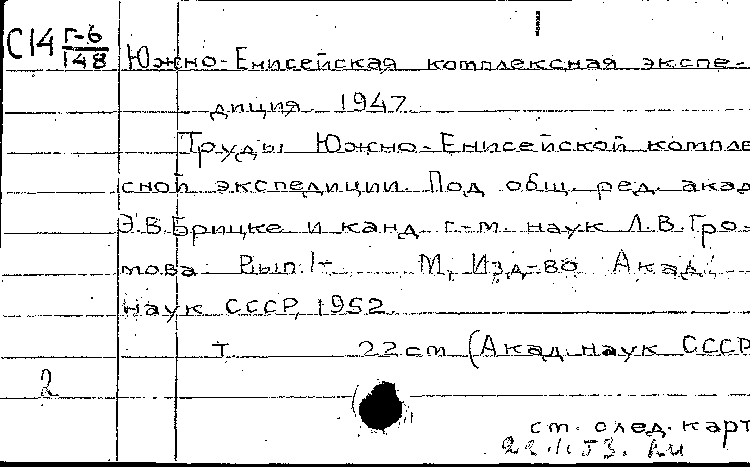 1
С14 Г-6/148
Южно-Енисейская комплексная экспе-
диция. 1947
Труды Южно-Енисейской компле
сной экспедиции. Под общ. ред. акад
Э.В.Брицке и канд. г.-м. наук Л.В.Гро-
мова. Вып.1- М, Изд-во Акад.
наук СССР, 1952.
т. 22 см (Акад. наук СССР
2
см. след. карт